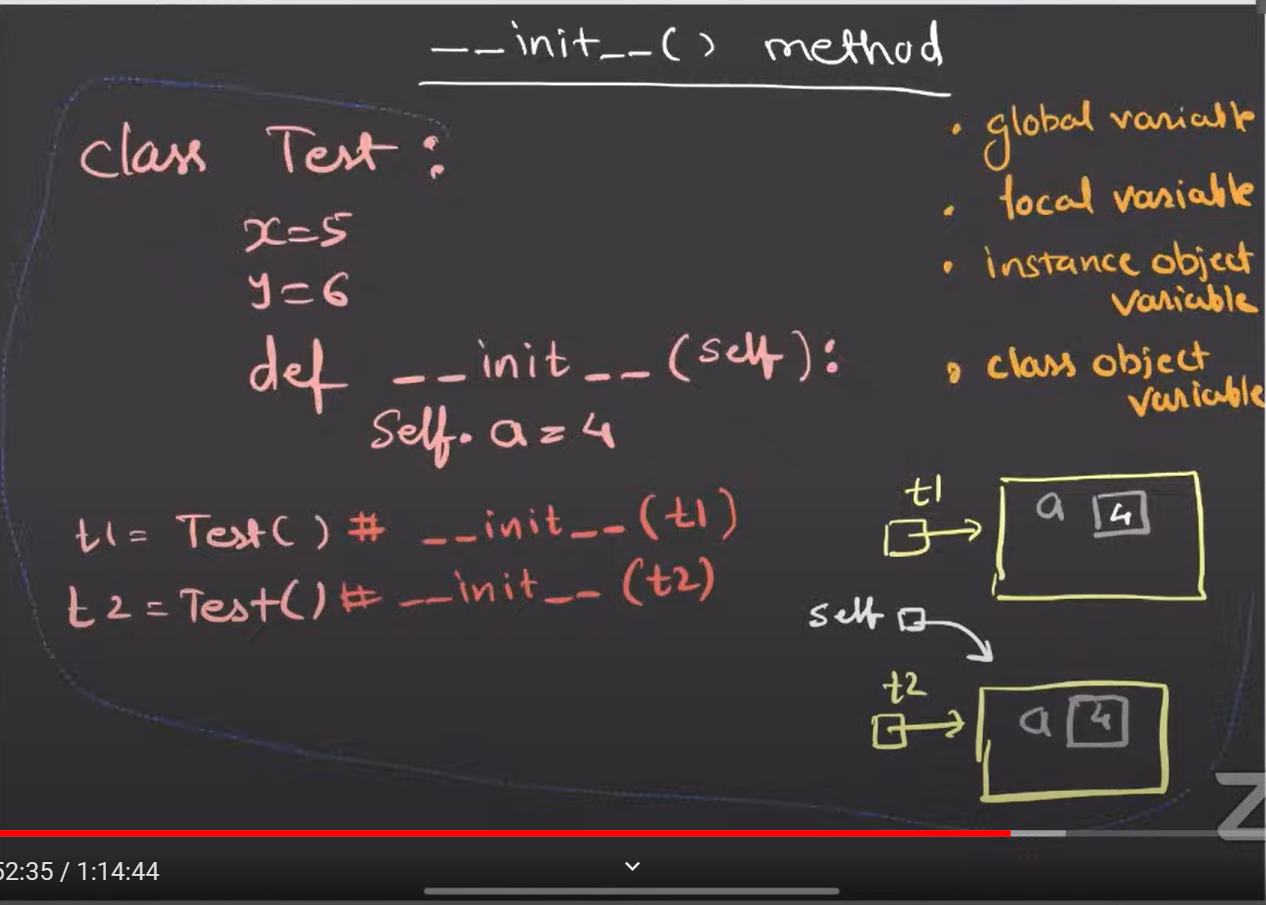 __init__() method
class Test:
x=5
y=6
def __init__(self):
self.a=4
t1= Test() # __init__(t1)
t2=Test() # __init__(t2)
• global variable
• local variable
• instance object
variable
• class object
variable
t1
a 4
self
t2
a 4
Z
52:35 / 1:14:44